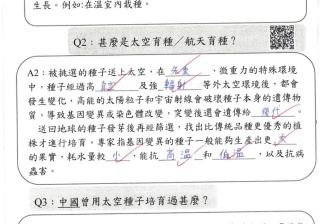 生長。例如:在溫室內栽種。
Q2:甚麼是太空育種/航天育種?
A2:被挑選的種子送上太空,在 失重 、微重力的特殊環境
中,種子經過高 真空 及強 輻射 等外太空環境後,都會
發生變化,高能的太陽粒子和宇宙射線會破壞種子本身的遺傳物
質,導致基因變異或染色體改變,突變後還會遺傳給 後代 。
送回地球的種子發芽後再經篩選,找出比傳統品種更優秀的植
株才進行培育。專家指基因變異的種子一般能夠生產出更 大
的果實,耗水量較 小 ,能抗 高溫 和 低溫 ,以及抗病
蟲害。
Q3:中國曾用太空種子培育過甚麼?